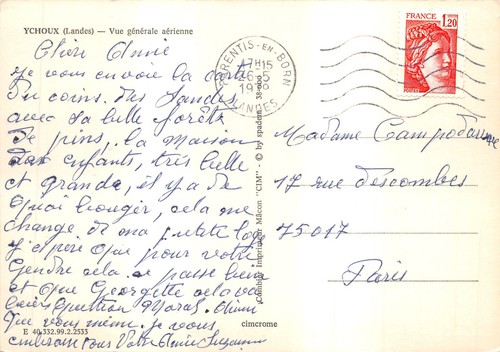 YCHOUX (Landes) — Vue générale aérienne
Chère Annie
je vous envoie la carte
du coin des Landes
avec sa belle forêt
de pins, la maison
des enfants, très belle
et grande, il y a de
quoi bouger, cela me
change de ma petite loge
j'espère que pour votre
Gendre cela se passe bien
et que Georgette cela va
question moral. Ainsi
que vous même, je vous
embrasse tous Votre Amie Suzanne
E 40.332.99.2.2533
Combier Imprimeur Mâcon "CIM" - © by spadem 38-000
cimcrome
PARENTIS-EN-BORN
17H15
16-5
19
LANDES
FRANCE
1,20
Madame Campodarve
17 rue descombes
75017
Paris